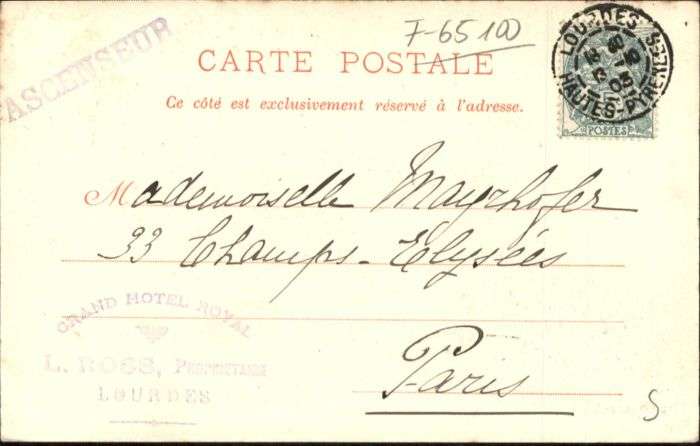 F-65100
ASCENSEUR
CARTE POSTALE
Ce côté est exclusivement réservé à l'adresse.
LOURDES
HAUTES-PYRÉNÉES
POSTES
Mademoiselle Mayrhofer
33 Champs-Elysées
Paris
GRAND HOTEL ROYAL
L. ROSS, PROPRIÉTAIRE
LOURDES
5